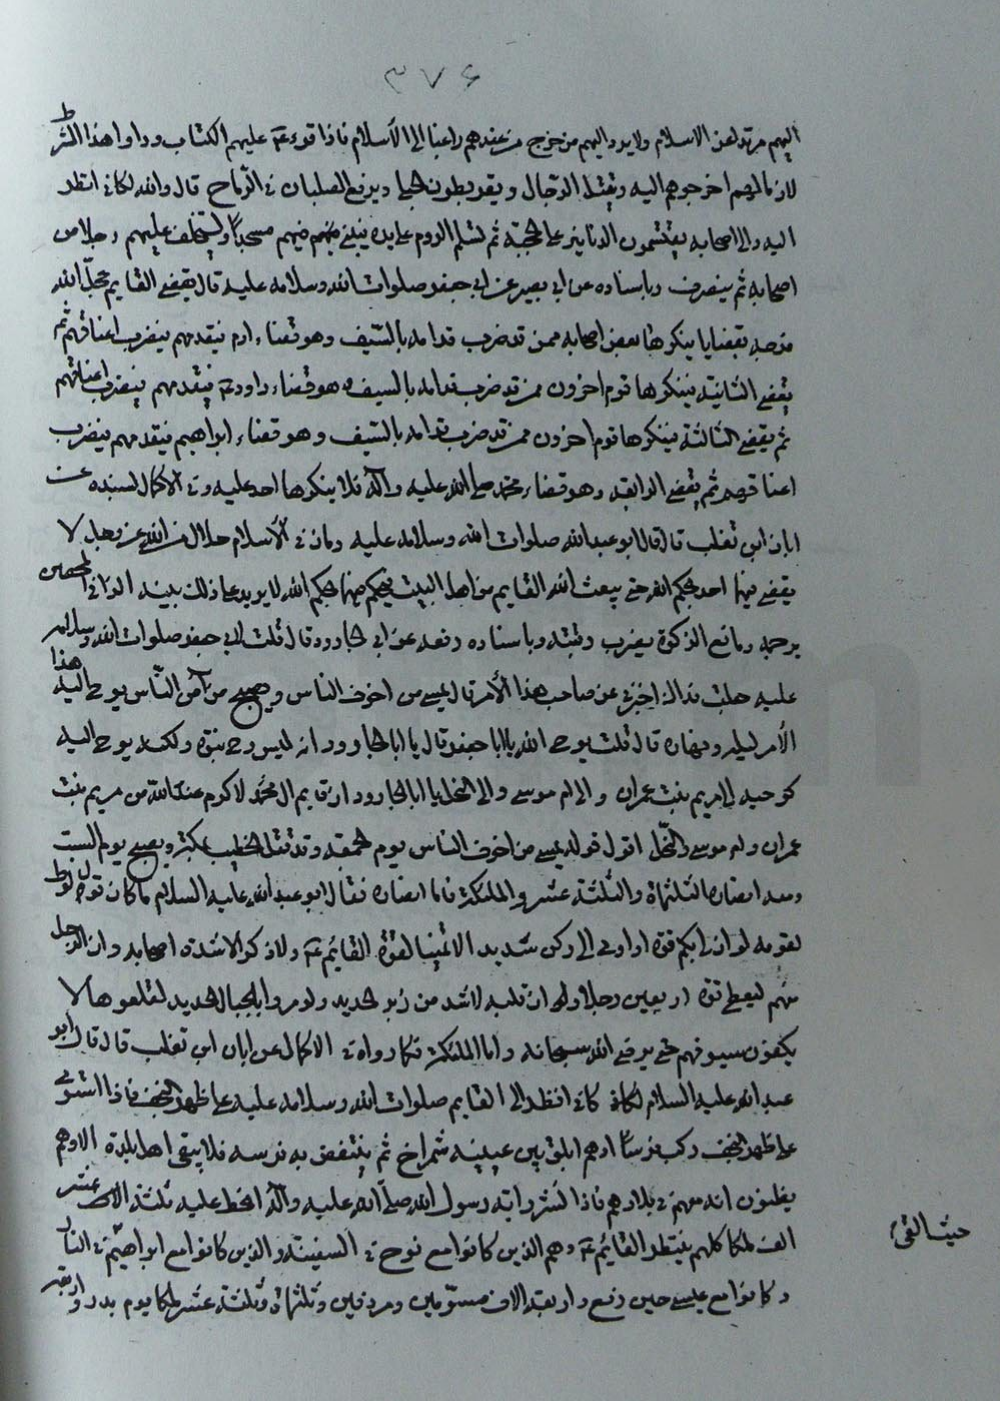 ٣٧٤
اليهم مرتدا عن الاسلام ولا يرد اليهم من خرج من عندهم راغبا الى الاسلام فاذا قرء عليهم الكتاب وراوا هذا الشرط
لازما لهم اخرجوهم اليه ويقتل الرجال ويقر بطون الحبالى ويرفع الصلبان في الرماح قال والله لكاني انظر
اليه والى اصحابه يقتسمون الدنانير على الجحفة ثم تسلم الروم على يده فيبني فيهم مسجدا ويستخلف عليهم رجلا من
اصحابه ثم ينصرف وباسناده عن ابي بصير عن ابي جعفر صلوات الله وسلامه عليه قال يقضي القايم عجل الله
فرجه بقضايا ينكرها بعض اصحابه ممن قد ضرب قدامه بالسيف وهو قضاء ادم فيقدمهم فيضرب اعناقهم ثم
يقضي الثانية فينكرها قوم اخرون ممن قد ضرب قدامه بالسيف وهو قضاء داود ع فيقدمهم فيضرب اعناقهم
ثم يقضي الثالثة فينكرها قوم اخرون ممن قد ضرب قدامه بالسيف وهو قضاء ابراهيم فيقدمهم فيضرب
اعناقهم ثم يقضي الرابعة وهو قضاء محمد صلى الله عليه وآله فلا ينكرها احد عليه وفي الاكمال بسنده عن
ابان ابن تغلب قال قال ابو عبد الله صلوات الله وسلامه عليه دمان في الاسلام حلال من الله عز وجل لا
يقضي فيهما احد بحكم الله حتى يبعث الله القايم من اهل البيت فيحكم فيهما بحكم الله لا يريد على ذلك بينة الزاني المحصن
يرجمه ومانع الزكوة يضرب رقبته وباسناده رفعه عن ابي الجارود قال قلت لابي جعفر صلوات الله وسلامه
عليه جعلت فداك اخبرني عن صاحب هذا الأمر قال يمسي من اخوف الناس ويصبح من آمن الناس يوحى اليه هذا
الأمر ليله ونهاره قال قلت يوحى اليه يا ابا جعفر قال يا ابا الجارود انه ليس وحي نبوة ولكنه يوحى اليه
كوحيه الى مريم بنت عمران والى ام موسى والى النحل يا ابا الجارود ان قايم ال محمد لاكرم عند الله من مريم بنت
عمران وام موسى والنحل اقول قوله يمسي من اخوف الناس يوم الجمعة وقد قتل الخطيب بمكة ويصبح يوم السبت
ومعه انصاره الثلثمائة والثلثة عشر والملئكة فاما انصاره فقال ابو عبد الله عليه السلام ما كان قول لوط
لقومه لو ان لي بكم قوة او اوي الى ركن شديد الا تمنيا لقوة القايم ع ولا ذكر الا شدة اصحابه وان الرجل
منهم ليعطى قوة اربعين رجلا وان قلبه لاشد من زبر الحديد ولو مروا بالجبال الحديد لقلعوها لا
يكفون سيوفهم حتى يرضى الله سبحانه واما الملئكة فكما رواه في الاكمال عن ابان ابن تغلب قال قال ابو
عبد الله عليه السلام لكاني انظر الى القايم صلوات الله وسلامه عليه على ظهر النجف فاذا استوى
على ظهر النجف ركب فرسا ادهم ابلق بين عينيه شمراخ ثم ينتفض به فرسه فلا يبقى اهل بلدة الا وهم
يظنون انه معهم في بلادهم فاذا نشر راية رسول الله صلى الله عليه وآله انحط عليه ثلثة عشر
الف ملكا كلهم ينتظر القايم ع وهم الذين كانوا مع نوح في السفينة والذين كانوا مع ابراهيم في النار
حيث القي
وكانوا مع عيسى حين رفع واربعة الاف مسومين ومردفين وثلثمائة وثلثة عشر ملكا يوم بدر واربعة